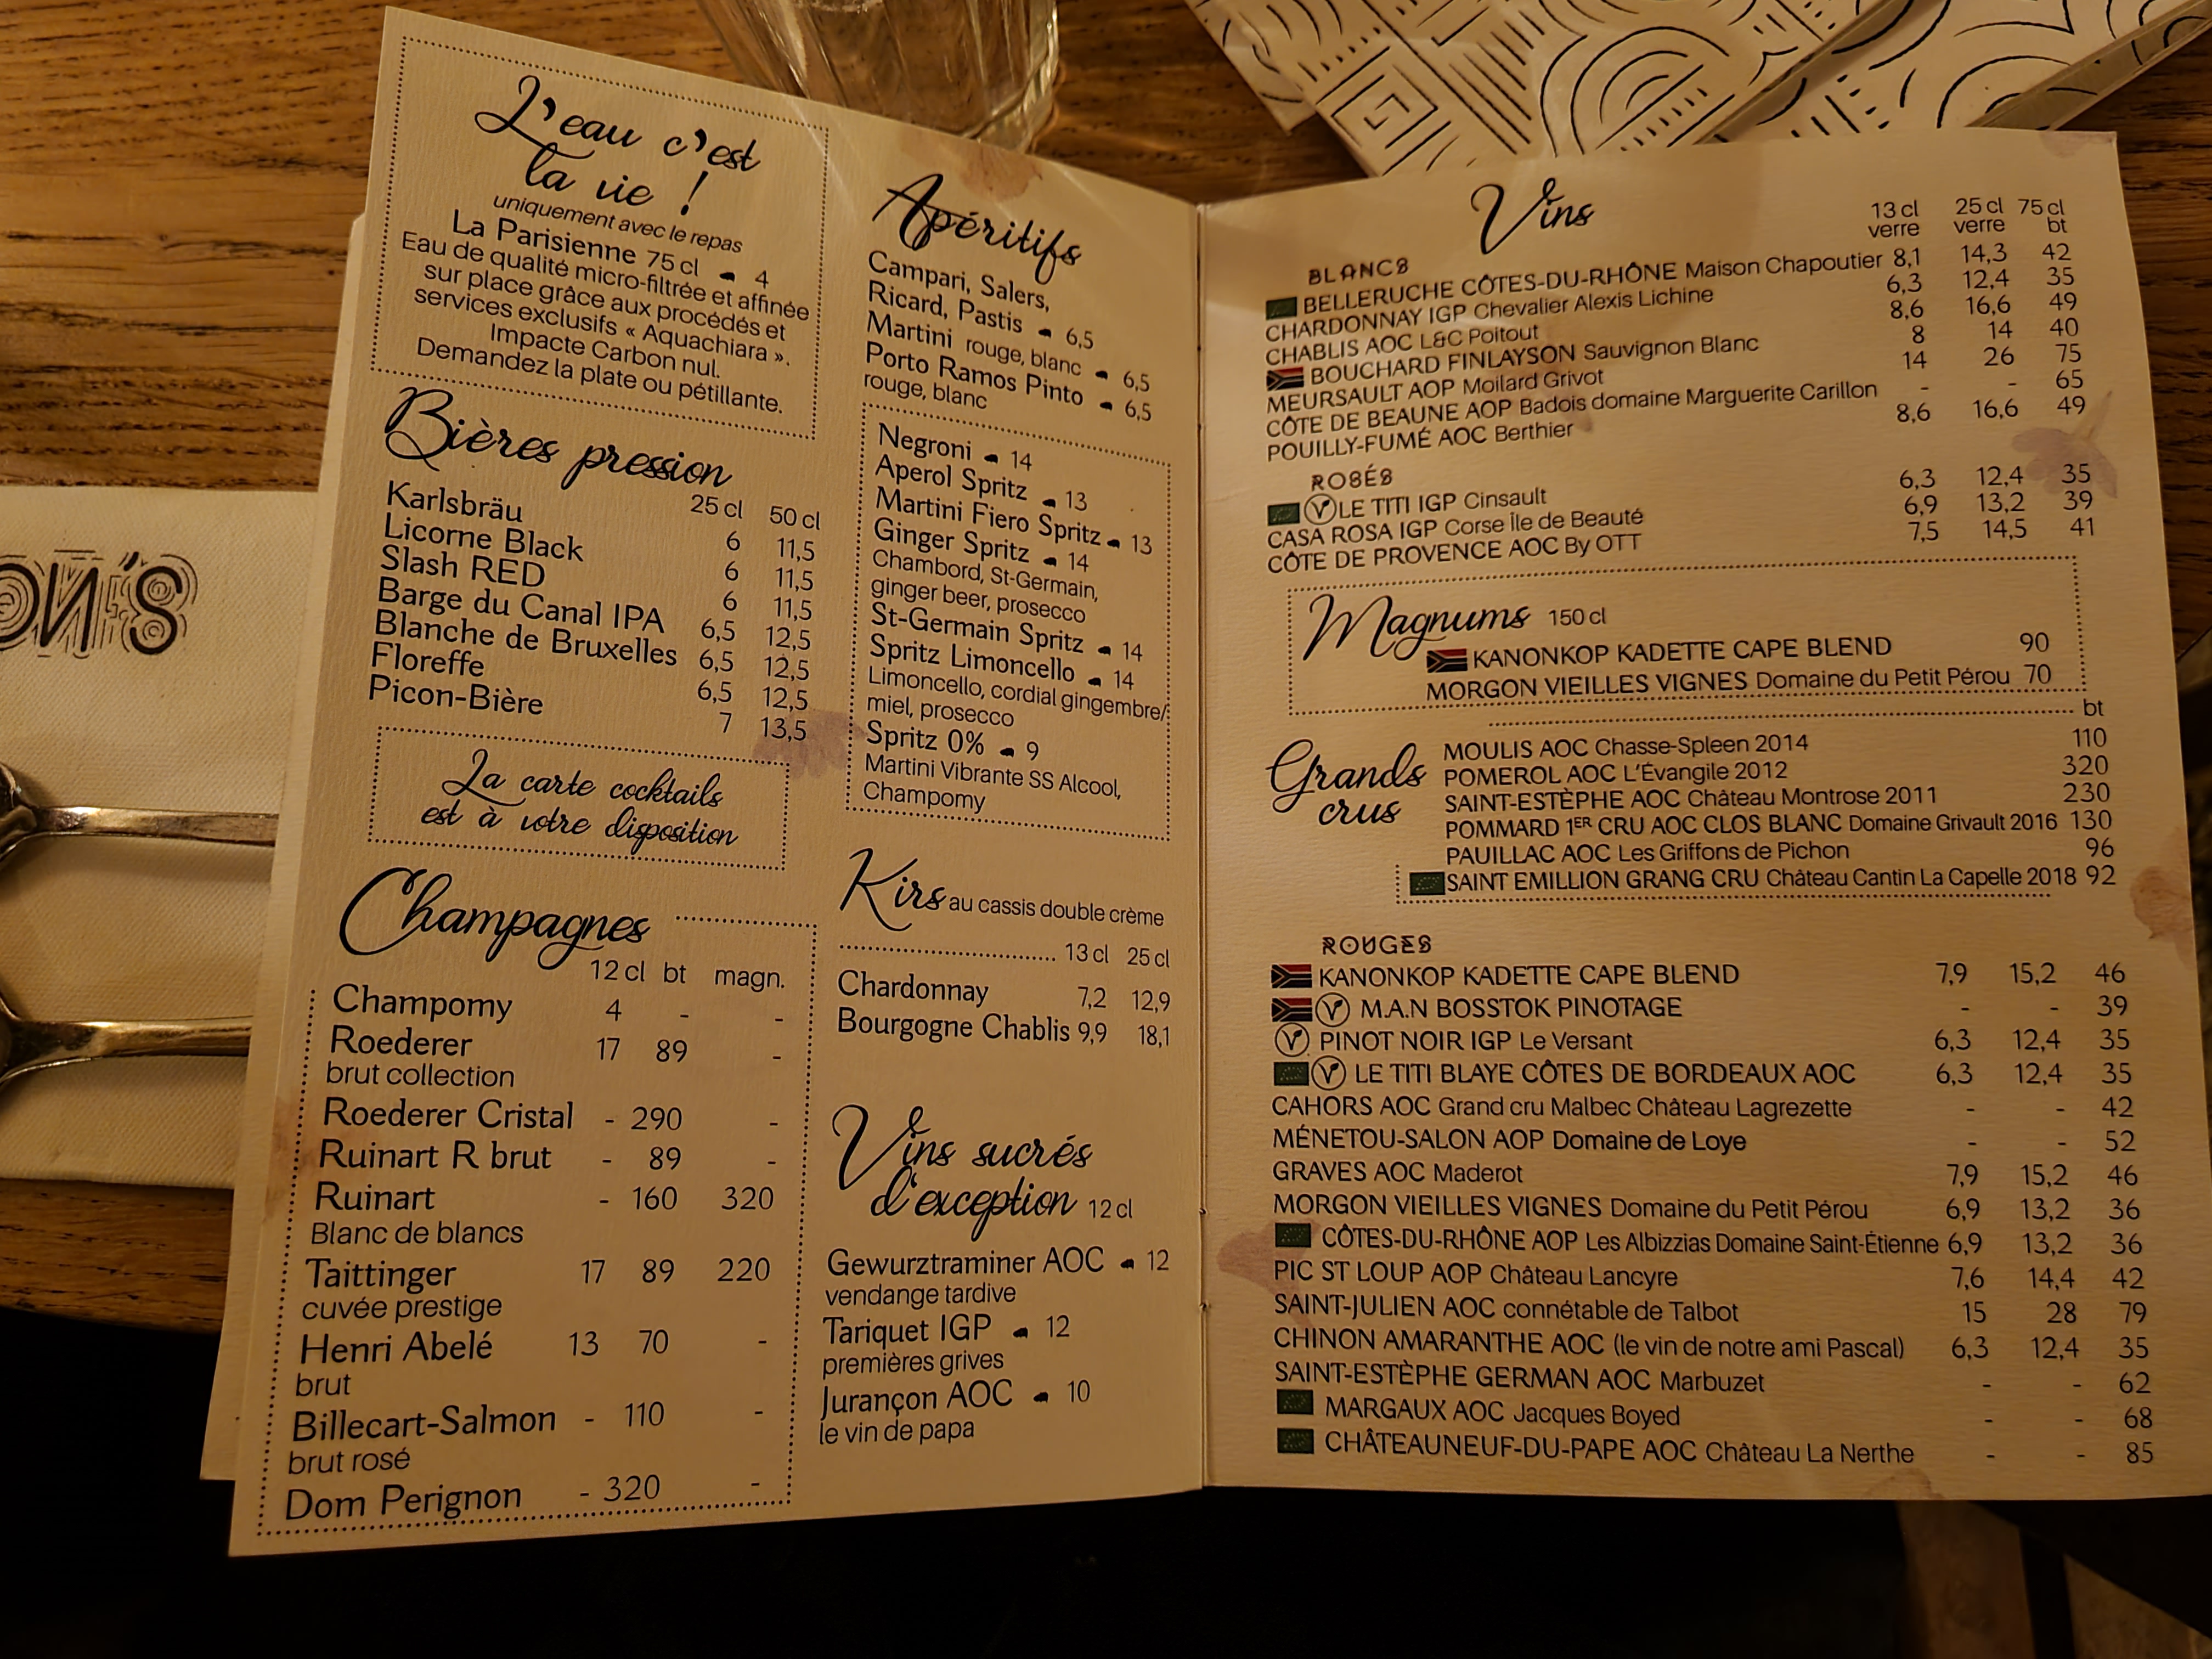 L'eau c'est
la vie !
uniquement avec le repas
La Parisienne 75 cl 4
Eau de qualité micro-filtrée et affinée
sur place grâce aux procédés et
services exclusifs « Aquachiara ».
Impacte Carbon nul.
Demandez la plate ou pétillante.
Bières pression
25 cl 50 cl
Karlsbräu 6 11,5
Licorne Black 6 11,5
Slash RED 6 11,5
Barge du Canal IPA 6,5 12,5
Blanche de Bruxelles 6,5 12,5
Floreffe 6,5 12,5
Picon-Bière 7 13,5
La carte cocktails
est à votre disposition
Champagnes
12 cl bt magn.
Champomy 4 - -
Roederer 17 89 -
brut collection
Roederer Cristal - 290 -
Ruinart R brut - 89 -
Ruinart - 160 320
Blanc de blancs
Taittinger 17 89 220
cuvée prestige
Henri Abelé 13 70 -
brut
Billecart-Salmon - 110 -
brut rosé
Dom Perignon - 320 -
Apéritifs
Campari, Salers,
Ricard, Pastis 6,5
Martini rouge, blanc 6,5
Porto Ramos Pinto 6,5
rouge, blanc
Negroni 14
Aperol Spritz 13
Martini Fiero Spritz 13
Ginger Spritz 14
Chambord, St-Germain,
ginger beer, prosecco
St-Germain Spritz 14
Spritz Limoncello 14
Limoncello, cordial gingembre/
miel, prosecco
Spritz 0% 9
Martini Vibrante SS Alcool,
Champomy
Kirs au cassis double crème
13 cl 25 cl
Chardonnay 7,2 12,9
Bourgogne Chablis 9,9 18,1
Vins sucrés
d'exception 12 cl
Gewurztraminer AOC 12
vendange tardive
Tariquet IGP 12
premières grives
Jurançon AOC 10
le vin de papa
Vins
13 cl 25 cl 75 cl
verre verre bt
BLANCS
BELLERUCHE CÔTES-DU-RHÔNE Maison Chapoutier 8,1 14,3 42
CHARDONNAY IGP Chevalier Alexis Lichine 6,3 12,4 35
CHABLIS AOC L&C Poitout 8,6 16,6 49
BOUCHARD FINLAYSON Sauvignon Blanc 8 14 40
MEURSAULT AOP Moilard Grivot 14 26 75
CÔTE DE BEAUNE AOP Badois domaine Marguerite Carillon - - 65
POUILLY-FUMÉ AOC Berthier 8,6 16,6 49
ROSÉS
LE TITI IGP Cinsault 6,3 12,4 35
CASA ROSA IGP Corse Île de Beauté 6,9 13,2 39
CÔTE DE PROVENCE AOC By OTT 7,5 14,5 41
Magnums 150 cl
KANONKOP KADETTE CAPE BLEND 90
MORGON VIEILLES VIGNES Domaine du Petit Pérou 70
bt
Grands
crus
MOULIS AOC Chasse-Spleen 2014 110
POMEROL AOC L'Évangile 2012 320
SAINT-ESTÈPHE AOC Château Montrose 2011 230
POMMARD 1ER CRU AOC CLOS BLANC Domaine Grivault 2016 130
PAUILLAC AOC Les Griffons de Pichon 96
SAINT EMILLION GRANG CRU Château Cantin La Capelle 2018 92
ROUGES
KANONKOP KADETTE CAPE BLEND 7,9 15,2 46
M.A.N BOSSTOK PINOTAGE - - 39
PINOT NOIR IGP Le Versant 6,3 12,4 35
LE TITI BLAYE CÔTES DE BORDEAUX AOC 6,3 12,4 35
CAHORS AOC Grand cru Malbec Château Lagrezette - - 42
MÉNETOU-SALON AOP Domaine de Loye - - 52
GRAVES AOC Maderot 7,9 15,2 46
MORGON VIEILLES VIGNES Domaine du Petit Pérou 6,9 13,2 36
CÔTES-DU-RHÔNE AOP Les Albizzias Domaine Saint-Étienne 6,9 13,2 36
PIC ST LOUP AOP Château Lancyre 7,6 14,4 42
SAINT-JULIEN AOC connétable de Talbot 15 28 79
CHINON AMARANTHE AOC (le vin de notre ami Pascal) 6,3 12,4 35
SAINT-ESTÈPHE GERMAN AOC Marbuzet - - 62
MARGAUX AOC Jacques Boyed - - 68
CHÂTEAUNEUF-DU-PAPE AOC Château La Nerthe - - 85